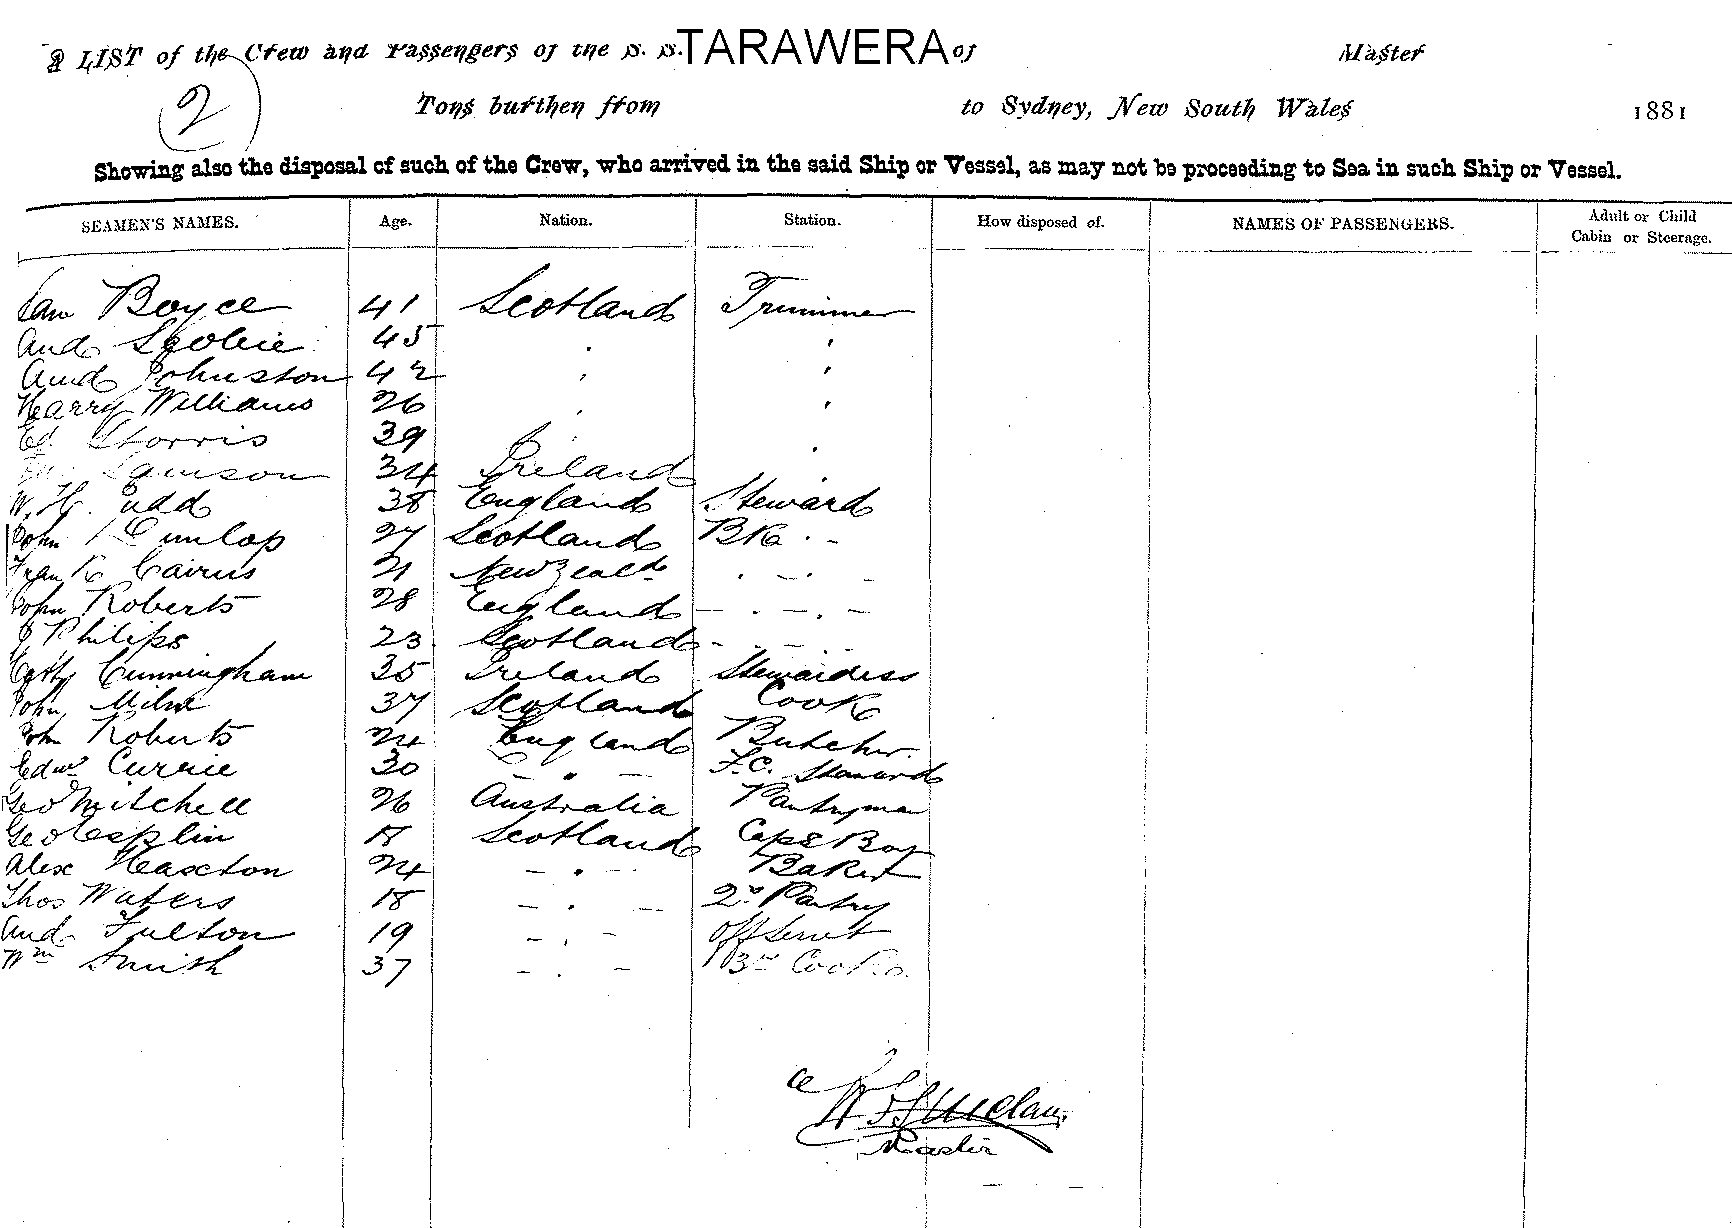 A LIST of the Crew and Passengers of the S. S. TARAWERA of Master
2 Tons burthen from to Sydney, New South Wales 1881
Showing also the disposal of such of the Crew, who arrived in the said Ship or Vessel, as may not be proceeding to Sea in such Ship or Vessel.
SEAMEN'S NAMES. Age. Nation. Station. How disposed of. NAMES OF PASSENGERS. Adult or Child
Cabin or Steerage.
Boyce 41 Scotland Trimmer
And Scobie 45 " "
And Johnston 42 " "
Harry Williams 26 " "
Ed 39 " "
34 Ireland "
W. H. Judd 38 England Steward
John Dunlop 27 Scotland
Frank Cairns 21 New Zeald
John Roberts 28 England — . — . —
J Philips 23 Scotland
Cunningham 35 Ireland Stewardess
John Milne 37 Scotland Cook
John Roberts 24 England Butcher.
Edwd Currie 30 — " — F.C. Steward
Geo Mitchell 26 Australia Pantryman
Geo Esplin 18 Scotland Capts Boy
Alex 24 — " — Baker
Thos Waters 18 — " — 2nd Pantry
And Fulton 19 — " —
Wm Smith 37 — " — 3rd Cook
Master